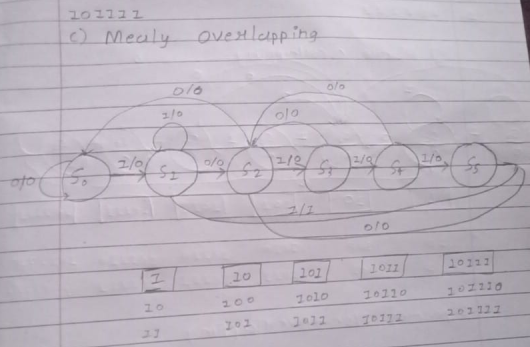 101111
c) Mealy overlapping
0/0 0/0
1/0 0/0
0/0 S0 1/0 S1 0/0 S2 1/0 S3 1/0 S4 1/0 S5
1/1
0/0
1 10 101 1011 10111
10 100 1010 10110 101110
11 101 1011 10111 101111